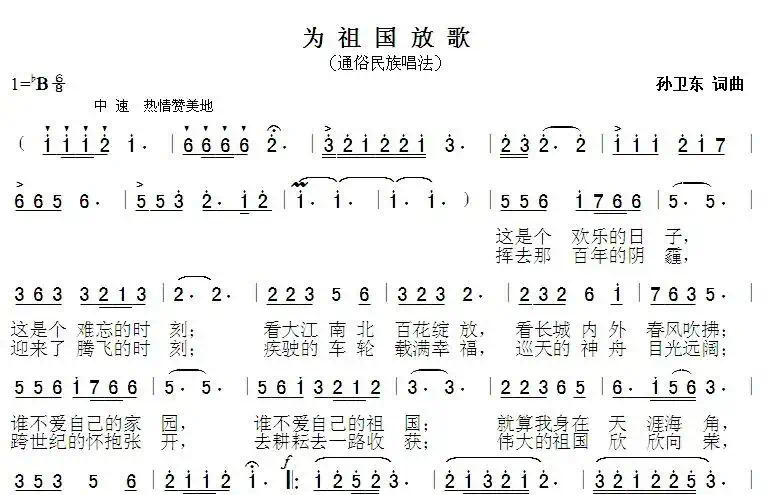 为祖国放歌
（通俗民族唱法）
1=♭B 6/8
孙卫东 词曲
中速 热情赞美地
( 1 1 1 2 1· | 6 6 6 6 2· | 3 2 1 2 2 1 3· | 2 3 2· 2 | 1 1 1 2 1 7 |
6 6 5 6· | 5 5 3 2· 1 2 | 1· 1· | 1· 1· ) | 5 5 6 1 7 6 6 | 5· 5· |
这是个 欢乐的日 子，
挥去那 百年的阴 霾，
3 6 3 3 2 1 3 | 2· 2· | 2 2 3 5 6 | 3 2 3 2· | 2 3 5 6 1 | 7 6 3 5· |
这是个 难忘的时 刻； 看大江 南北 百花绽放， 看长城 内外 春风吹拂；
迎来了 腾飞的时 刻； 疾驶的 车轮 载满幸福， 巡天的 神舟 目光远阔；
5 5 6 1 7 6 6 | 5· 5· | 5 6 1 3 2 1 2 | 1· 1· | 2 2 3 6 5 | 6· 1 5 6 3· |
谁不爱自己的家 园， 谁不爱自己的祖 国； 就算我身在 天 涯海 角，
跨世纪的怀抱张 开， 去耕耘去一路收 获； 伟大的祖国 欣 欣向 荣，
3 5 3 5 6 | 2 1 1 2 1· f ‖: 1 2 5 2 3· | 2 1 3 2 1 2· | 3 2 1 2 2 5 3· |